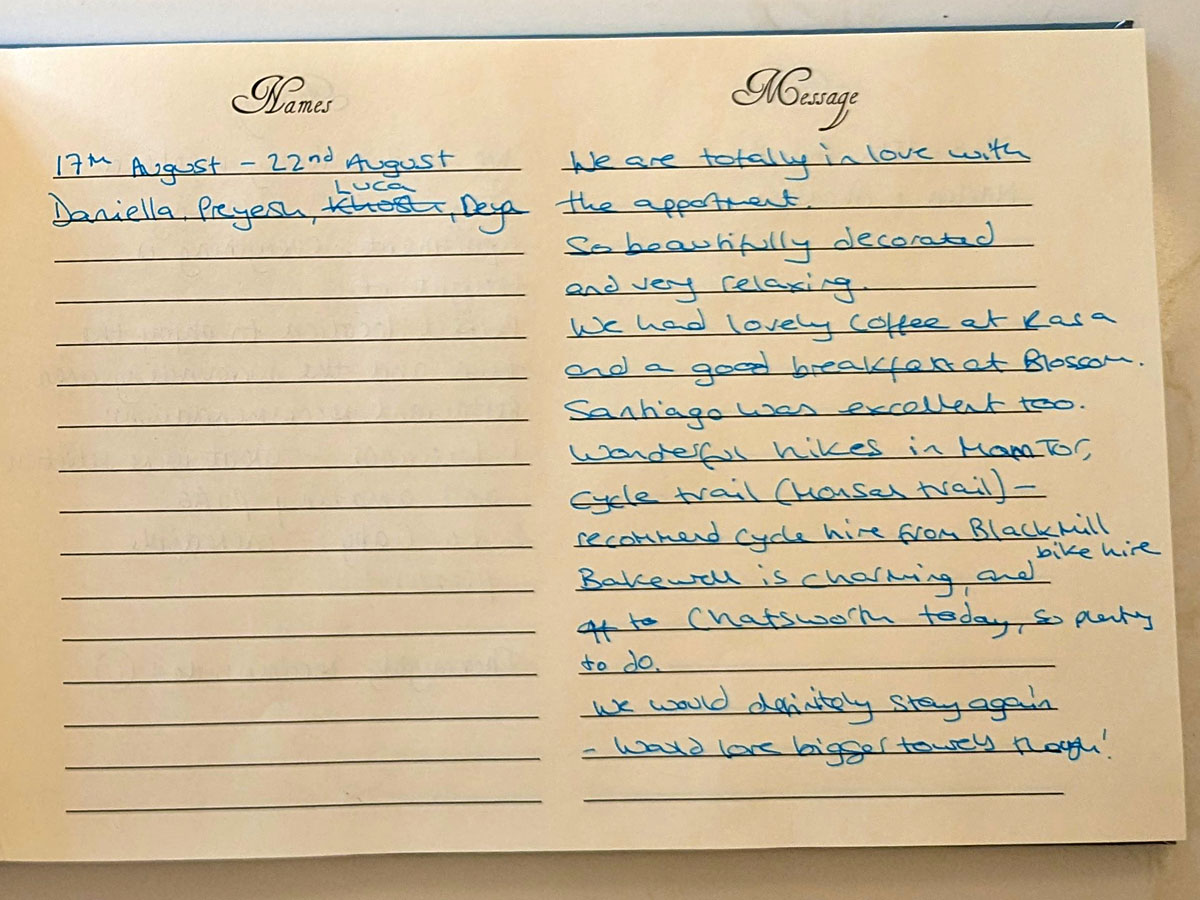 Names
17th August - 22nd August
Luca
Daniella, Preyesh, Khosh, Deya
Message
We are totally in love with
the appartment.
So beautifully decorated
and very relaxing.
We had lovely coffee at Rasa
and a good breakfast at Blossom.
Santiago was excellent too.
Wonderful hikes in Mam Tor,
cycle trail (Monsal trail) -
recommend cycle hire from Blackmill
bike hire
Bakewell is charming, and
off to Chatsworth today, so plenty
to do.
We would definitely stay again
- Would love bigger towels though!